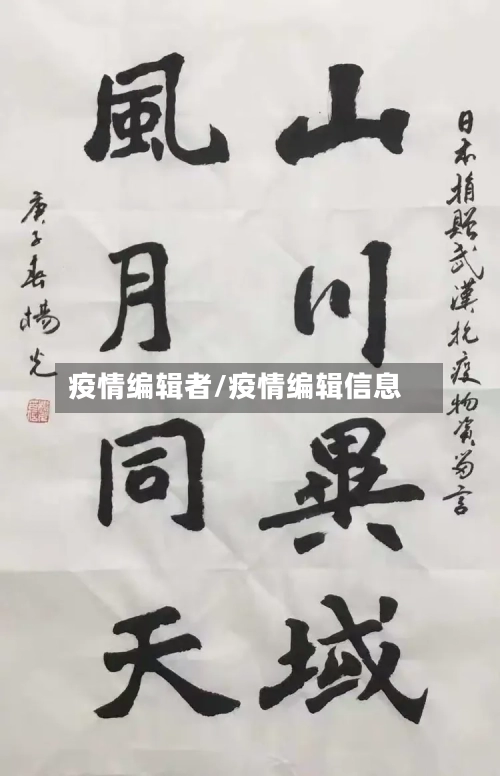 日本捐贈武漢抗疫物資留言
山川異域
風月同天
庚子春楊光
疫情编辑者/疫情编辑信息